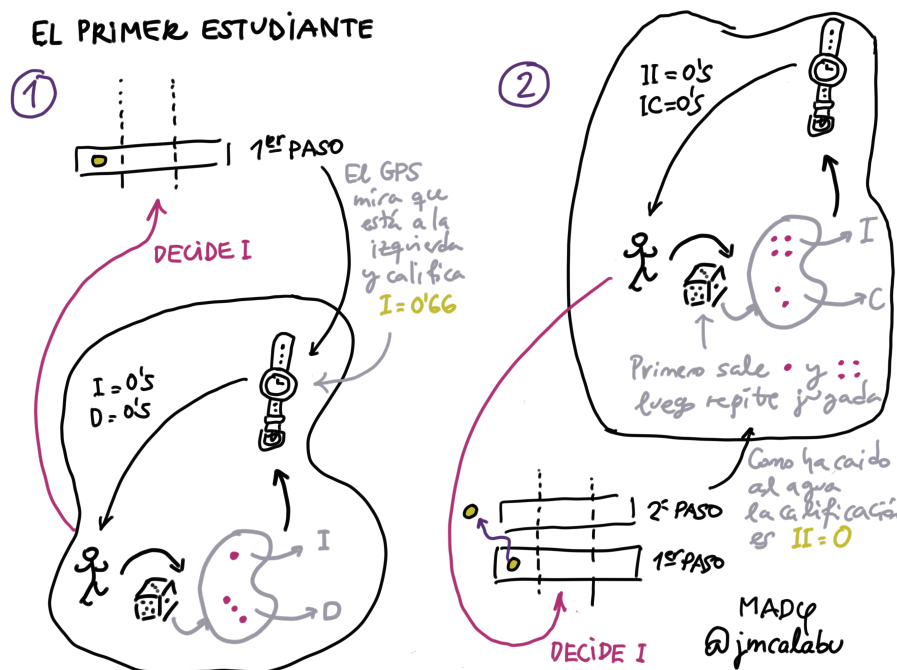 EL PRIMER ESTUDIANTE
1
1er PASO
El GPS
mira que
está a la
izquierda
y califica
I = 0'66
DECIDE I
I = 0'5
D = 0'5
I
D
2
II = 0'5
IC = 0'5
I
C
Primero sale • y ::
luego repite jugada
Como ha caido
al agua
la calificación
es II = 0
2º PASO
1er PASO
DECIDE I
MADφ
@jmcalabu